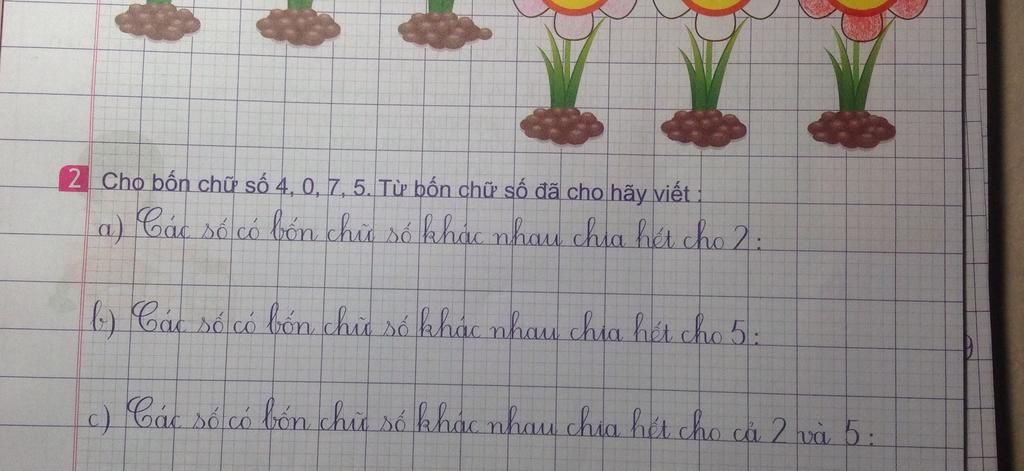 2 Cho bốn chữ số 4, 0, 7, 5. Từ bốn chữ số đã cho hãy viết :
a) Các số có bốn chữ số khác nhau chia hết cho 2:
b) Các số có bốn chữ số khác nhau chia hết cho 5:
c) Các số có bốn chữ số khác nhau chia hết cho cả 2 và 5: